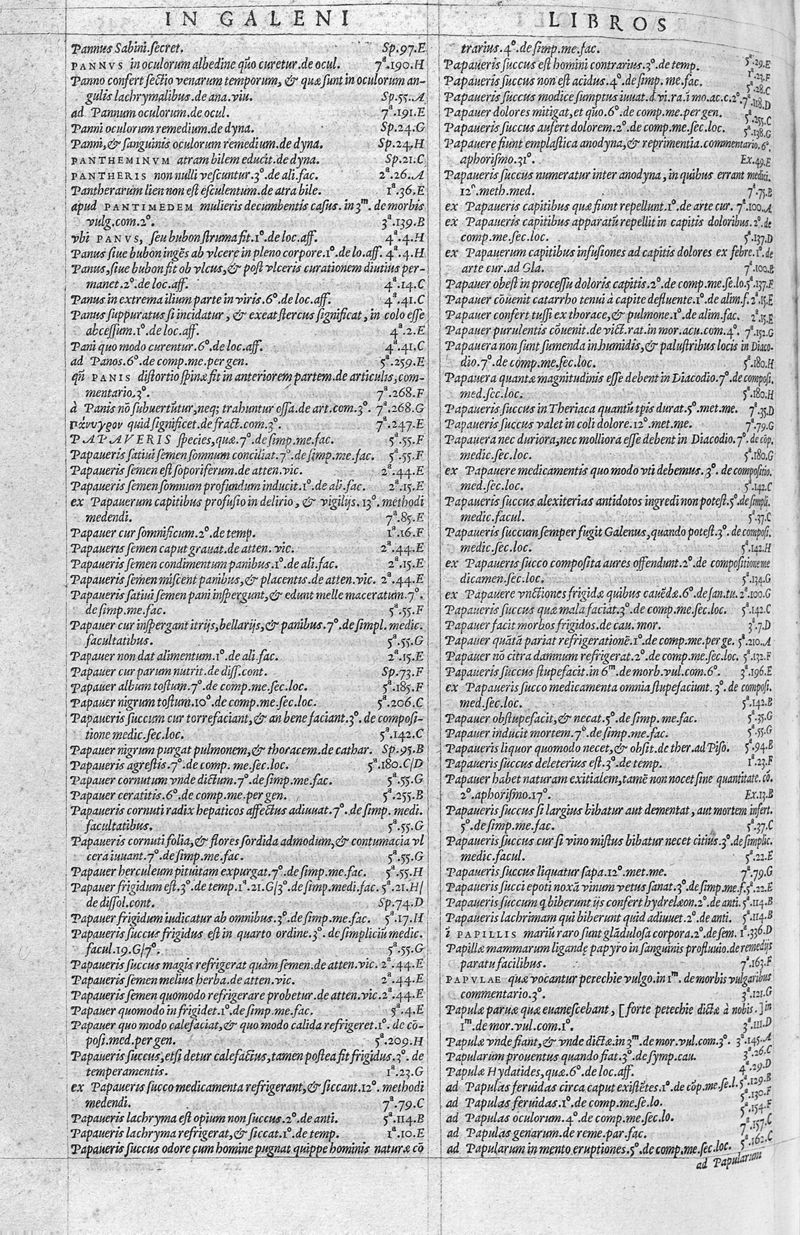 IN GALENI LIBROS
Pannus Sabini.secret. Sp.97.E
PANNVS in oculorum albedine quo curetur.de ocul. 7ª.190.H
Panno confert sectio venarum temporum, & quæ sunt in oculorum an-
gulis lachrymalibus.de ana.viu. Sp.55.A
ad Pannum oculorum.de ocul. 7ª.191.E
Panni oculorum remedium.de dyna. Sp.24.G
Panni,& sanguinis oculorum remedium.de dyna. Sp.24.H
PANTHEMINVM atram bilem educit.de dyna. Sp.21.C
PANTHERIS non nulli vescuntur.3º.de ali.fac. 2ª.26.A
Pantherarum lien non est esculentum.de atra bile. 1ª.36.E
apud PANTIMEDEM mulieris decumbentis casus. in 3m.de morbis
vulg.com.2º. 3ª.139.B
vbi PANVS, seu bubon struma fit.1º.de loc.aff. 4ª.4.H
Panus siue bubon ingẽs ab vlcere in pleno corpore.1º.de lo.aff. 4ª.4.H
Panus,siue bubon fit ob vlcus,& post vlceris curationem diutius per-
manet.2º.de loc.aff. 4ª.14.C
Panus in extrema ilium parte in viris.6º.de loc.aff. 4ª.41.C
Panus suppuratus si incidatur, & exeat stercus significat, in colo esse
abcessum.1º.de loc.aff. 4ª.2.E
Pani quo modo curentur.6º.de loc.aff. 4ª.41.C
ad Panos.6º.de comp.me.per gen. 5ª.259.E
qñ PANIS distortio spinæ fit in anteriorem partem.de articulis,com-
mentario.3º. 7ª.268.F
à Panis nõ subuertũtur,neq; trahuntur ossa.de art.com.3º. 7ª.268.G
Γάνυγρον quid significet.de fract.com.3º. 7ª.247.E
PAPAVERIS species,quæ.7º.de simp.me.fac. 5ª.55.F
Papaueris satiui semen somnum conciliat.7º.de simp.me.fac. 5ª.55.F
Papaueris semen est soporiferum.de atten.vic. 2ª.44.E
Papaueris semen somnum profundum inducit.1º.de ali.fac. 2ª.15.E
ex Papauerum capitibus profusio in delirio, & vigilijs.13º. methodi
medendi. 7ª.85.E
Papauer cur somnificum.2º.de temp. 1ª.16.F
Papaueris semen caput grauat.de atten.vic. 2ª.44.E
Papaueris semen condimentum panibus.1º.de ali.fac. 2ª.15.E
Papaueris semen miscent panibus,& placentis.de atten.vic. 2ª.44.E
Papaueris satiui semen pani inspergunt,& edunt melle maceratum.7º.
de simp.me.fac. 5ª.55.F
Papauer cur inspergant itrijs,bellarijs,& panibus.7º.de simpl. medic.
facultatibus. 5ª.55.G
Papauer non dat alimentum.1º.de ali.fac. 2ª.15.E
Papauer cur parum nutrit.de diss.cont. Sp.73.F
Papauer album tostum.7º.de comp.me.sec.loc. 5ª.185.F
Papauer nigrum tostum.10º.de comp.me.sec.loc. 5ª.206.C
Papaueris succum cur torrefaciant,& an bene faciant.3º.de composi-
tione medic.sec.loc. 5ª.142.C
Papauer nigrum purgat pulmonem,& thoracem.de cathar. Sp.95.B
Papaueris agrestis.7º.de comp. me.sec.loc. 5ª.180.C/D
Papauer cornutum vnde dictum.7º.de simp.me.fac. 5ª.55.G
Papauer ceratitis.6º.de comp.me.per gen. 5ª.255.B
Papaueris cornuti radix hepaticos affectus adiuuat.7º.de simp. medi.
facultatibus. 5ª.55.G
Papaueris cornuti folia,& flores sordida admodum,& contumacia vl
cera iuuant.7º.de simp.me.fac. 5ª.55.G
Papauer herculeum pituitam expurgat.7º.de simp.me.fac. 5ª.55.H
Papauer frigidum est.3º.de temp.1ª.21.G/3º.de simp.medi.fac.5ª.21.H/
de dissol.cont. Sp.74.D
Papauer frigidum iudicatur ab omnibus.3º.de simp.me.fac. 5ª.17.H
Papaueris succus frigidus est in quarto ordine.3º.de simpliciũ medic.
facul.19.G/7º. 5ª.55.G
Papaueris succus magis refrigerat quàm semen.de atten.vic. 2ª.44.E
Papaueris semen melius herba.de atten.vic. 2ª.44.E
Papaueris semen quomodo refrigerare probetur.de atten.vic. 2ª.44.E
Papauer quomodo in frigidet.1º.de simp.me.fac. 5ª.4.E
Papauer quo modo calefaciat,& quo modo calida refrigeret.1º. de cõ-
posi.med.per gen. 5ª.209.H
Papaueris succus,etsi detur calefactus,tamen postea fit frigidus.3º. de
temperamentis. 1ª.23.G
ex Papaueris succo medicamenta refrigerant,& siccant.12º. methodi
medendi. 7ª.79.C
Papaueris lachryma est opium non succus.2º.de anti. 5ª.114.B
Papaueris lachryma refrigerat,& siccat.1º.de temp. 1ª.10.E
Papaueris succus odore cum homine pugnat quippe hominis naturæ cõ
trarius.4º.de simp.me.fac.
Papaueris succus est homini contrarius.3º.de temp. 5ª.29.E
Papaueris succus non est acidus.4º.de simp. me.fac. 1ª.23.F
Papaueris succus modice sumptus iuuat.d vi.ra.i mo.ac.c.2º.7ª.118.D
Papauer dolores mitigat,et quo.6º.de comp.me.per gen. 5ª.255.C
Papaueris succus aufert dolorem.2º.de comp.me.sec.loc. 5ª.138.G
Papauere fiunt emplastica anodyna,& reprimentia.commentario.6º.
aphorismo.31º. Ex.49.E
Papaueris succus numeratur inter anodyna, in quibus errant medici.
12º.meth.med. 7ª.75.B
ex Papaueris capitibus quæ fiunt repellunt.1º.de arte cur. 7ª.100.A
ex Papaueris capitibus apparatũ repellit in capitis doloribus.2º.de
comp.me.sec.loc. 5ª.137.D
ex Papauerum capitibus infusiones ad capitis dolores ex febre.1º.de
arte cur.ad Gla. 7ª.100.B
Papauer obest in processu doloris capitis.2º.de comp.me.se.lo.5ª.137.F
Papauer cõuenit catarrho tenui à capite defluente.1º.de alim.f.2ª.15.E
Papauer confert tussi ex thorace,& pulmone.1º.de alim.fac. 2ª.15.E
Papauer purulentis cõuenit.de vict.rat.in mor.acu.com.4º. 7ª.152.G
Papauera non sunt sumenda in humidis,& palustribus locis in Diaco-
dio.7º.de comp.me.sec.loc. 5ª.180.H
Papauera quantæ magnitudinis esse debent in Diacodio.7º.de composi.
med.sec.loc. 5ª.180.H
Papaueris succus in Theriaca quantũ tpis durat.5º.met.me. 7ª.35.D
Papaueris succus valet in coli dolore.12º.met.me. 7ª.79.G
Papauera nec duriora,nec molliora esse debent in Diacodio.7º.de cõp.
medic.sec.loc. 5ª.180.G
ex Papauere medicamentis quo modo vti debemus. 3º.de compositio.
med.sec.loc. 5ª.142.C
Papaueris succus alexiterias antidotos ingredi non potest.5º.de simpli.
medic.facul. 5ª.37.C
Papaueris succum semper fugit Galenus,quando potest.3º.de composi.
medic.sec.loc. 5ª.142.H
ex Papaueris succo composita aures offendunt.2º.de compositione me
dicamen.sec.loc. 5ª.134.G
ex Papauere vnctiones frigidæ quibus cauẽdæ.6º.de san.tu.2ª.100.G
Papaueris succus quæ mala faciat.3º.de comp.me.sec.loc. 5ª.142.C
Papauer facit morbos frigidos.de cau. mor. 3ª.7.D
Papauer quãtã pariat refrigerationẽ.1º.de comp.me.per ge.5ª.210.A
Papauer nõ citra damnum refrigerat.2º.de comp.me.sec.loc. 5ª.132.F
Papaueris succus stupefacit.in 6m.de morb.vul.com.6º. 3ª.196.E
ex Papaueris succo medicamenta omnia stupefaciunt. 3º.de composi.
med.sec.loc. 5ª.142.B
Papauer obstupefacit,& necat.5º.de simp.me.fac. 5ª.35.G
Papauer inducit mortem.7º.de simp.me.fac. 5ª.55.G
Papaueris liquor quomodo necet,& obsit.de ther.ad Piso. 5ª.94.B
Papaueris succus deleterius est.3º.de temp. 1ª.23.F
Papauer habet naturam exitialem,tamẽ non nocet sine quantitate.cõ.
2º.aphorismo.17º. Ex.13.B
Papaueris succus si largius bibatur aut dementat, aut mortem infert.
5º.de simp.me.fac. 5ª.37.C
Papaueris succus cur si vino mistus bibatur necet citius.3º.de simplic.
medic.facul. 5ª.22.E
Papaueris succus liquatur sapa.12º.met.me. 7ª.79.G
Papaueris succi epoti noxã vinum vetus sanat.3º.de simp.me.f.5ª.22.E
Papaueris succum q biberunt ijs confert hydrelæon.2º.de anti. 5ª.114.B
Papaueris lachrimam qui biberunt quid adiuuet.2º.de anti. 5ª.114.B
ĩ PAPILLIS mariũ raro sunt glãdulosa corpora.2º.de sem. 1ª.336.D
Papillæ mammarum ligandę papyro in sanguinis profluuio.de remedijs
paratu facilibus. 7ª.163.F
PAPVLAE quæ vocantur petechie vulgo.in 1m.de morbis vulgaribus
commentario.3º. 3ª.121.G
Papulæ paruæ quæ euanescebant, [forte petechie dictæ à nobis.] in
1m.de mor.vul.com.1º. 3ª.111.D
Papulæ vnde fiant,& vnde dictæ.in 3m.de mor.vul.com.3º. 3ª.145.A
Papularum prouentus quando fiat.3º.de symp.cau. 3ª.26.C
Papulæ Hydatides, quæ.6º.de loc.aff. 4ª.29.D
ad Papulas feruidas circa caput existẽtes.1º.de cõp.me.se.l.5ª.129.B
ad Papulas feruidas.1º.de comp.me.se.lo. 5ª.130.F
ad Papulas oculorum.4º.de comp.me.sec.lo. 5ª.154.F
ad Papulas genarum.de reme.par.fac. 7ª.157.C
ad Papularum in mento eruptiones.5º.de comp.me.sec.loc. 5ª.162.C
ad Papularum